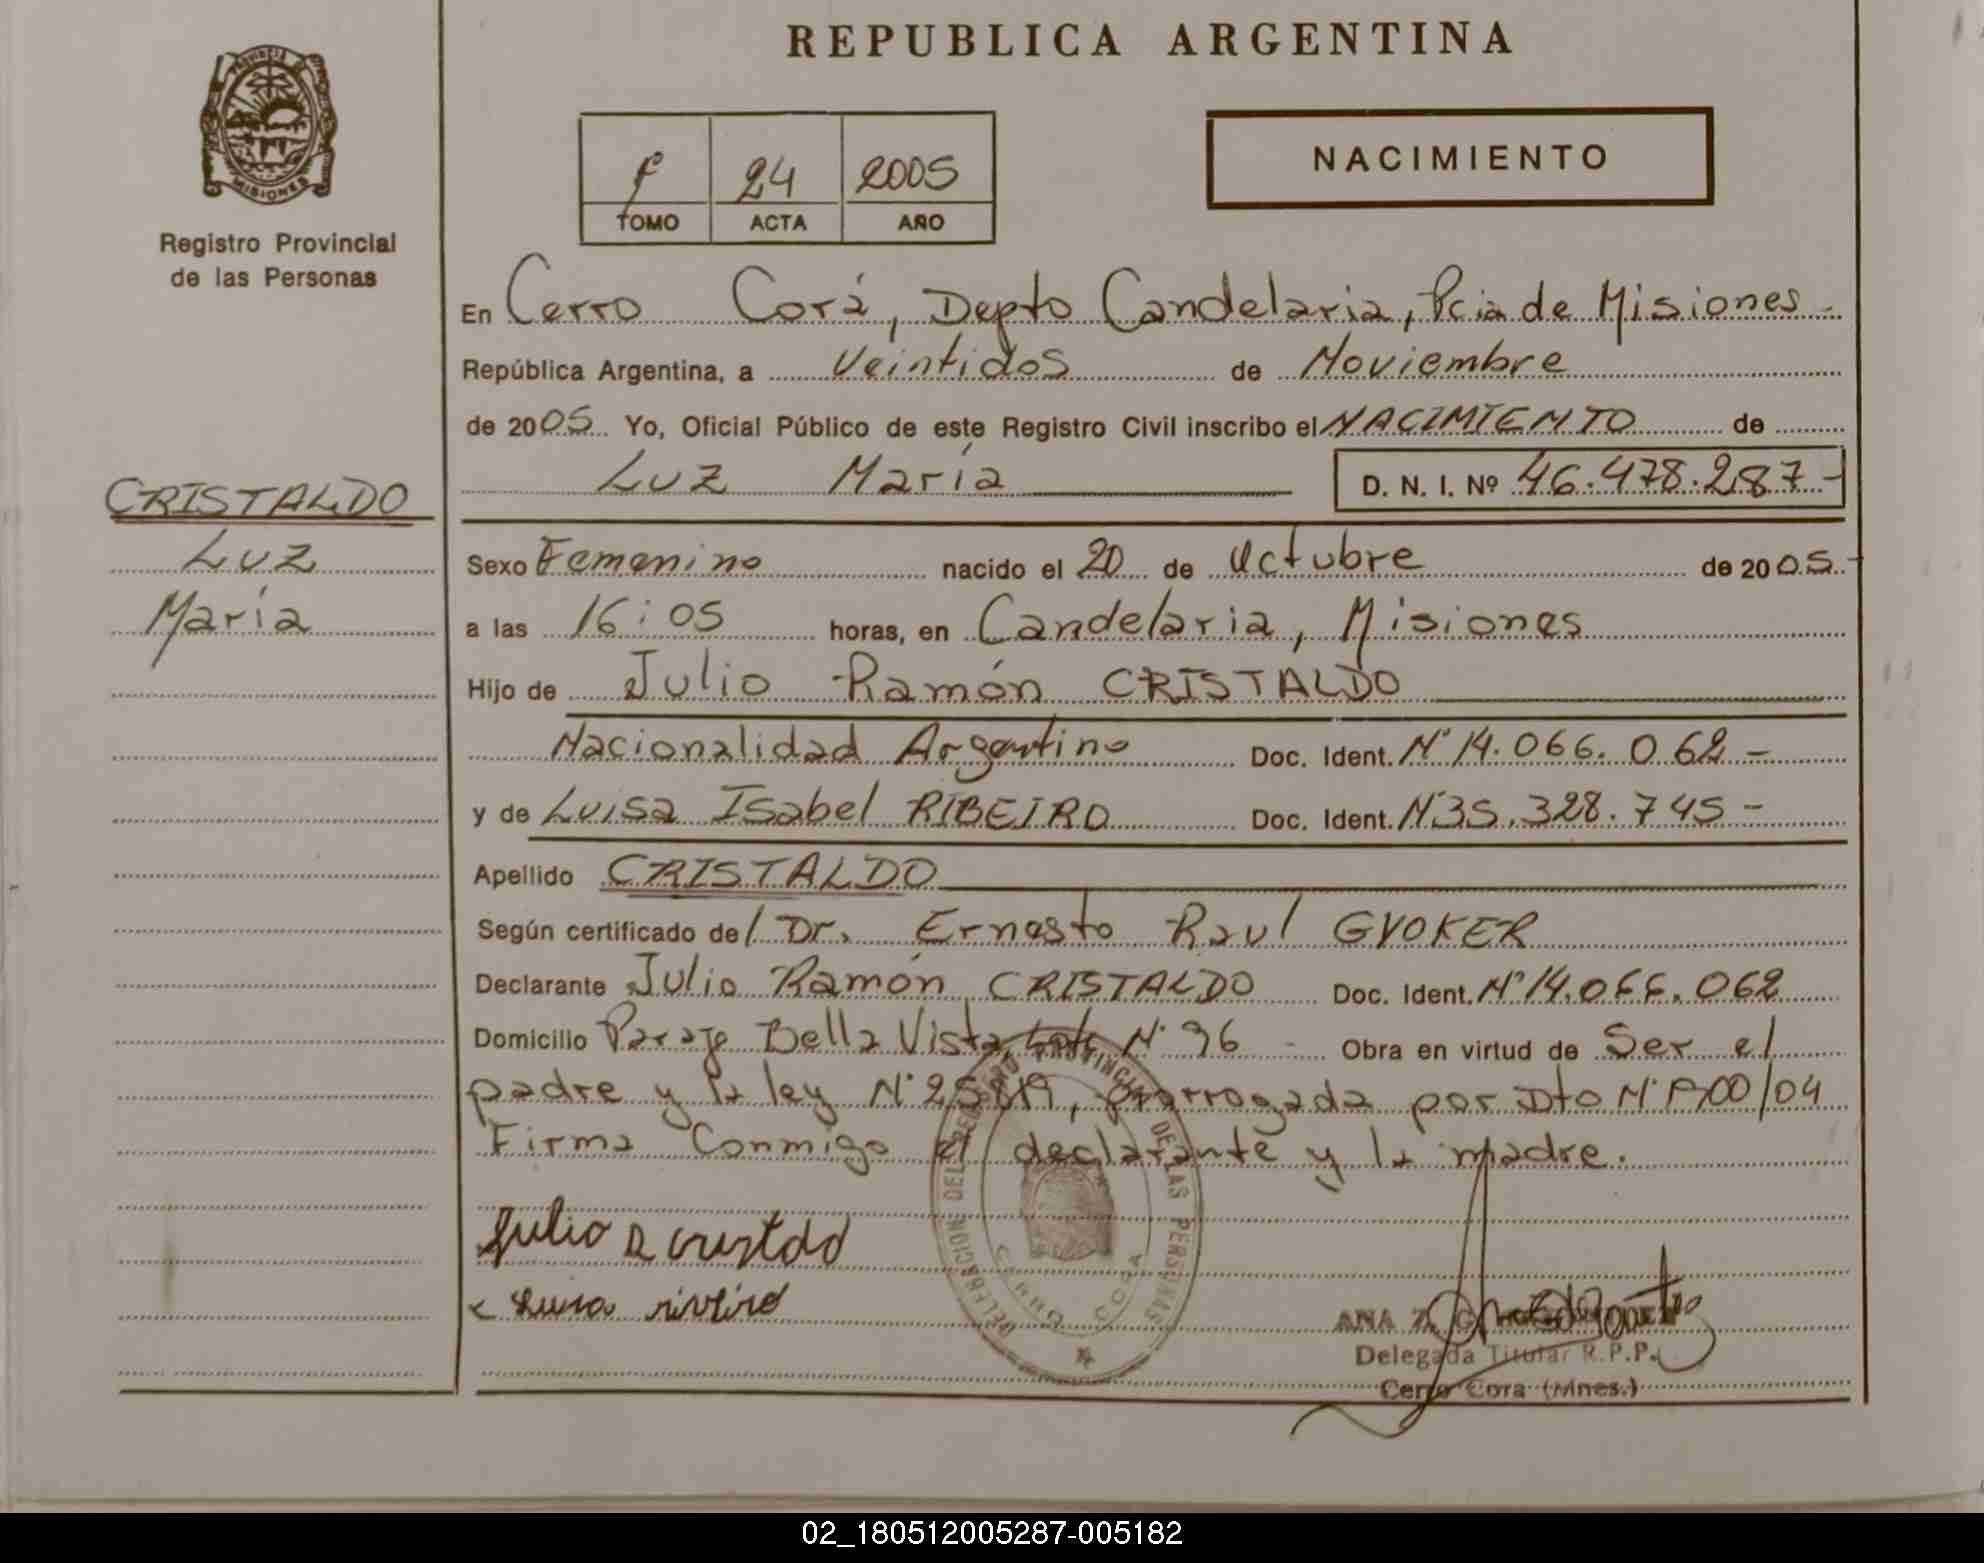 REPUBLICA ARGENTINA
PROVINCIA DE
MISIONES
Registro Provincial
de las Personas
24 2005
TOMO ACTA AÑO
NACIMIENTO
En Cerro Corá, Depto Candelaria, Pcia de Misiones -
República Argentina, a Veintidos de Noviembre
de 2005 Yo, Oficial Público de este Registro Civil inscribo el NACIMIENTO de
Luz María D. N. I. Nº 46.478.287-
CRISTALDO
Luz
María
Sexo Femenino nacido el 20 de Octubre de 2005-
a las 16:05 horas, en Candelaria, Misiones
Hijo de Julio Ramón CRISTALDO
Nacionalidad Argentino Doc. Ident. Nº 14.066.062-
y de Luisa Isabel RIBEIRO Doc. Ident. Nº 35.328.745-
Apellido CRISTALDO
Según certificado de/ Dr. Ernesto Raul GVOKER
Declarante Julio Ramón CRISTALDO Doc. Ident. Nº 14.066.062
Domicilio Paraje Bella Vista, Lote Nº 96 - Obra en virtud de Ser el
padre y la ley Nº 25819, prorrogada por Dto Nº /04
Firma Conmigo el declarante y la madre.
DELEGACION DEL REGISTRO PROVINCIAL DE LAS PERSONAS
CERRO CORA
Julio R Cristaldo
ANA
Delegada Titular R.P.P.
Cerro Cora (Mnes.)
02_180512005287-005182